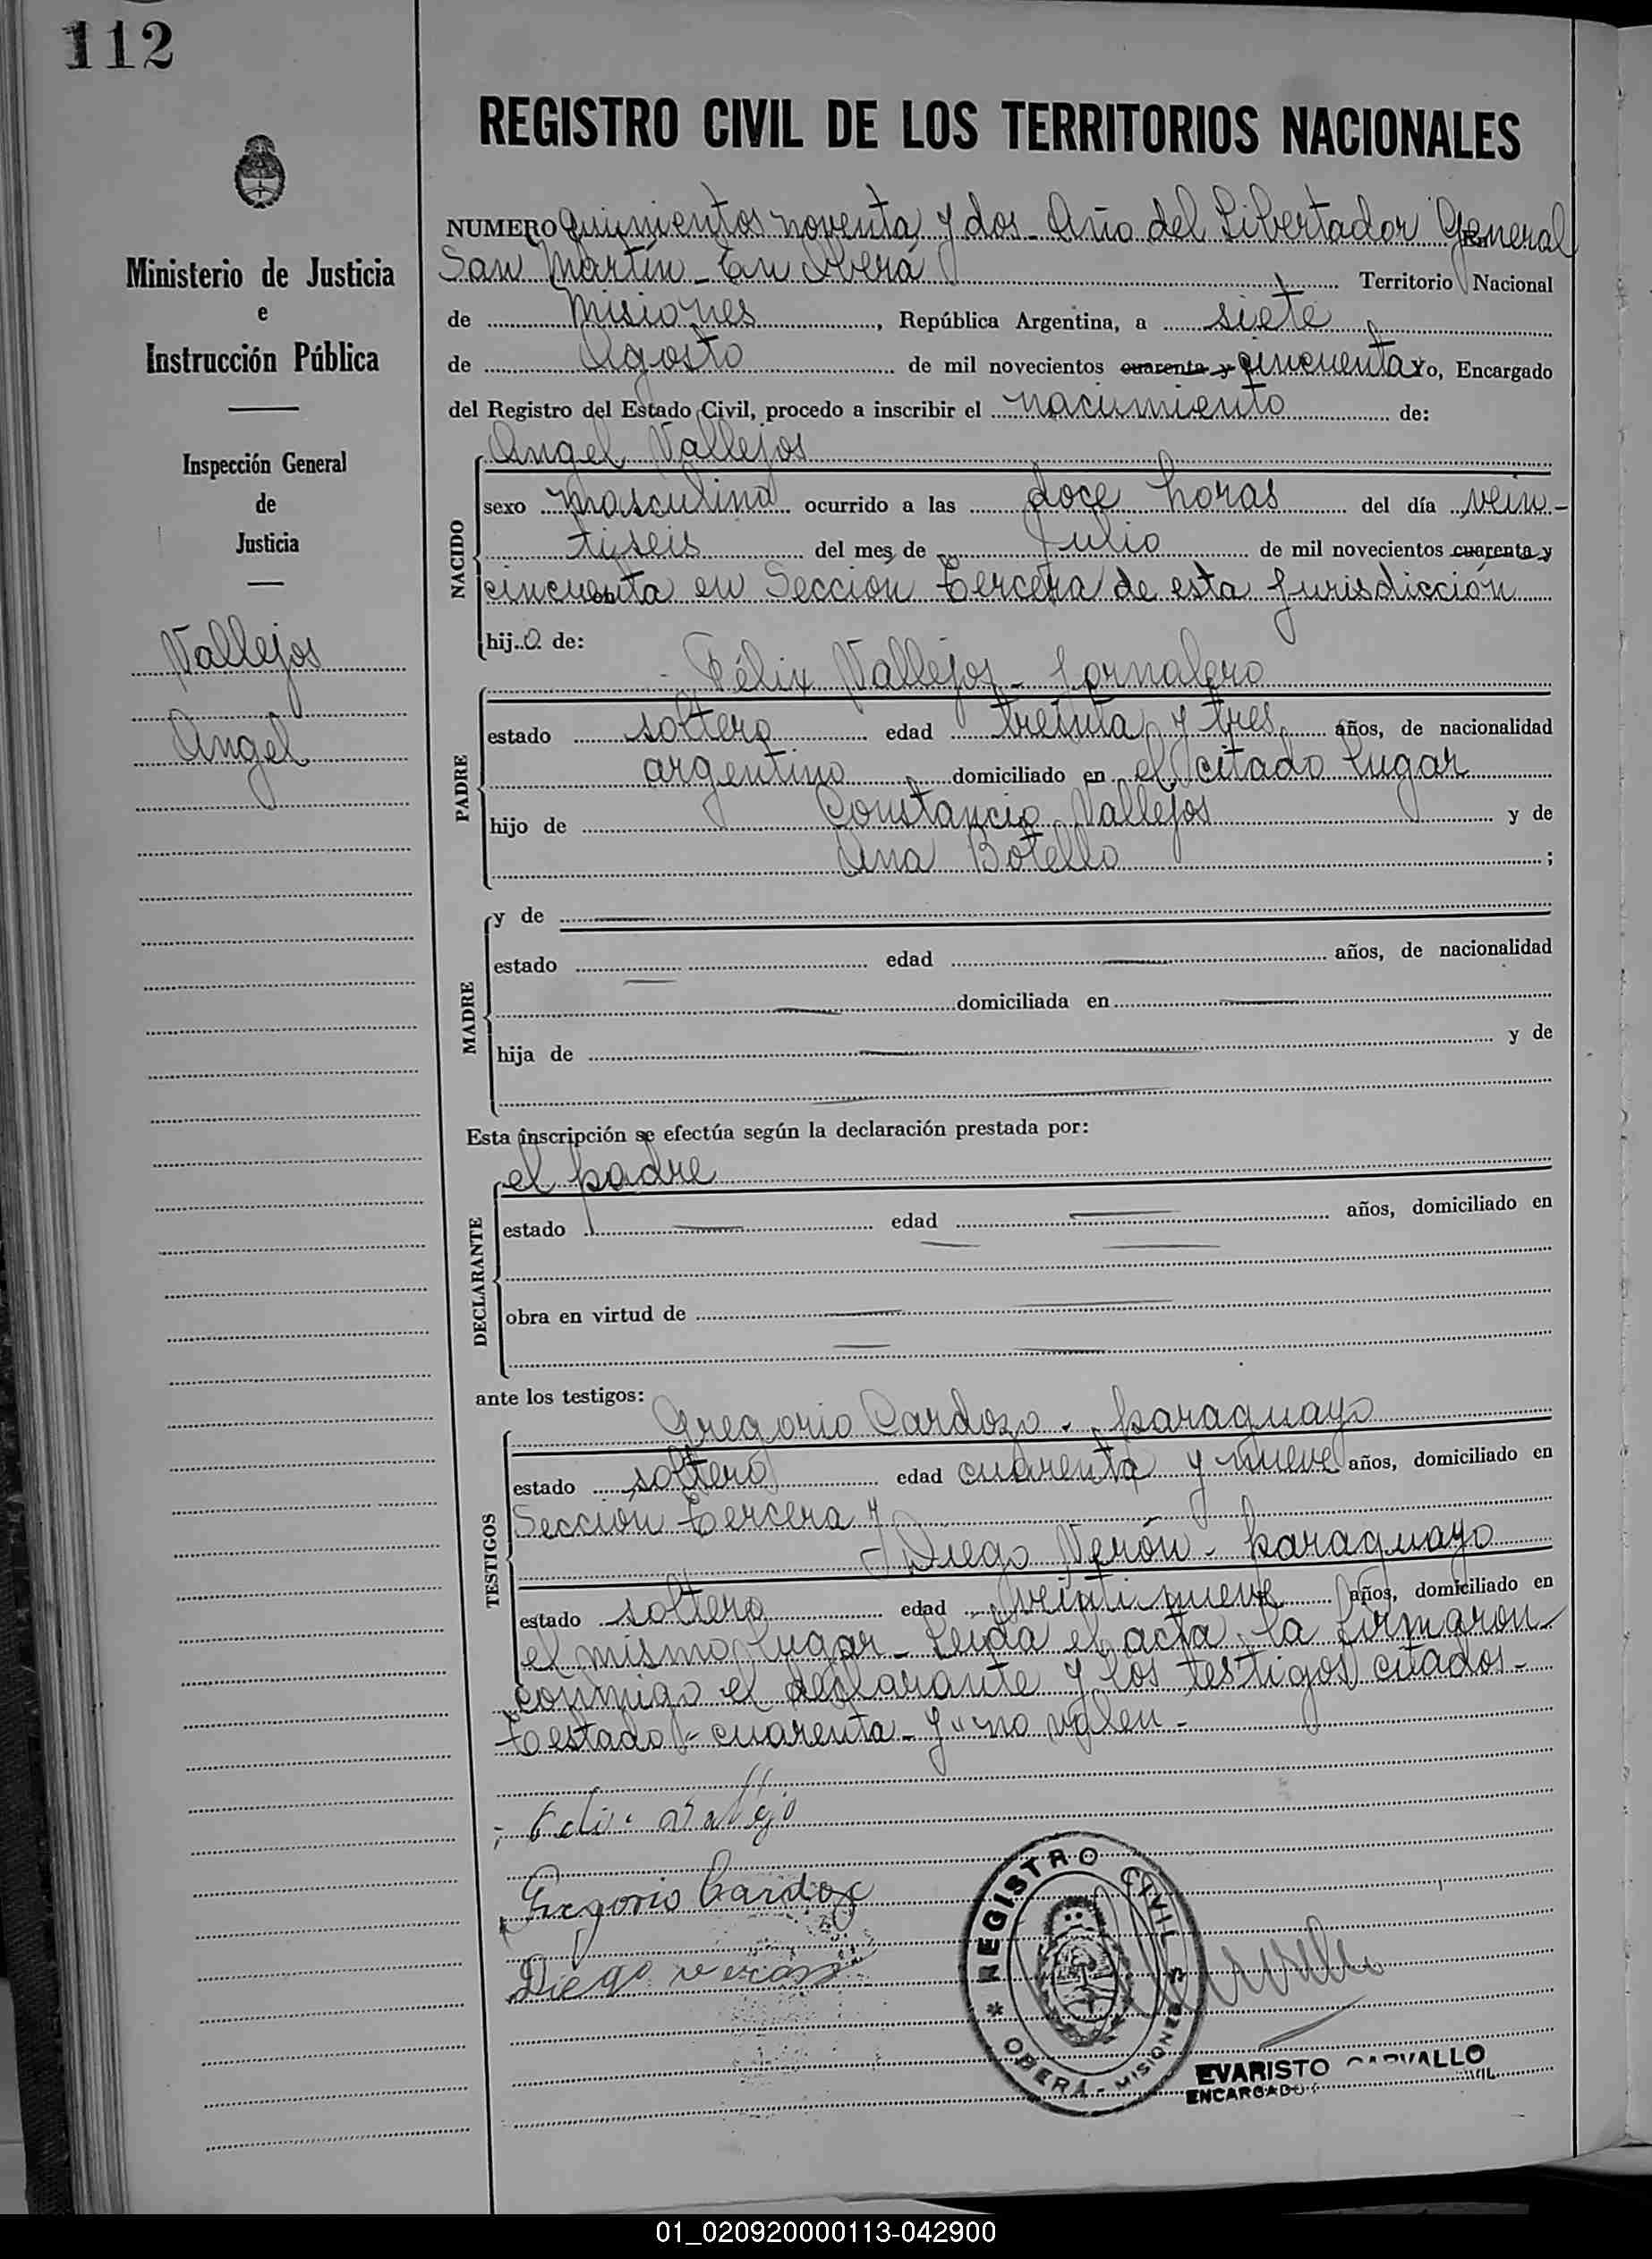 112
REGISTRO CIVIL DE LOS TERRITORIOS NACIONALES
Ministerio de Justicia
e
Instrucción Pública
Inspección General
de
Justicia
Vallejos
Angel
NUMERO quinientos noventa y dos - Año del Libertador General
San Martín - En Oberá Territorio Nacional
de Misiones, República Argentina, a siete
de Agosto de mil novecientos cuarenta y cincuenta yo, Encargado
del Registro del Estado Civil, procedo a inscribir el nacimiento de:
NACIDO
Angel Vallejos
sexo masculino ocurrido a las doce horas del día vein-
tiseis del mes de Julio de mil novecientos cuarenta y
cincuenta en Sección Tercera de esta Jurisdicción
hijo de:
PADRE
Félix Vallejos - Jornalero
estado soltero edad treinta y tres años, de nacionalidad
argentino domiciliado en el citado lugar
hijo de Constancio Vallejos y de
Ana Botello ;
MADRE
y de
estado edad años, de nacionalidad
domiciliada en
hija de y de
Esta inscripción se efectúa según la declaración prestada por:
DECLARANTE
el padre
estado edad años, domiciliado en
obra en virtud de
ante los testigos:
TESTIGOS
Gregorio Cardozo - paraguayo
estado soltero edad cuarenta y nueve años, domiciliado en
Sección Tercera y
Diego Verón - paraguayo
estado soltero edad veintinueve años, domiciliado en
el mismo lugar - Leída el acta, la firmaron
conmigo el declarante y los testigos citados -
Testado "cuarenta - y" no valen -
Gregorio Cardozo
Diego veron
REGISTRO CIVIL
OBERÁ - MISIONES
EVARISTO CARVALLO
ENCARGADO
01_020920000113-042900